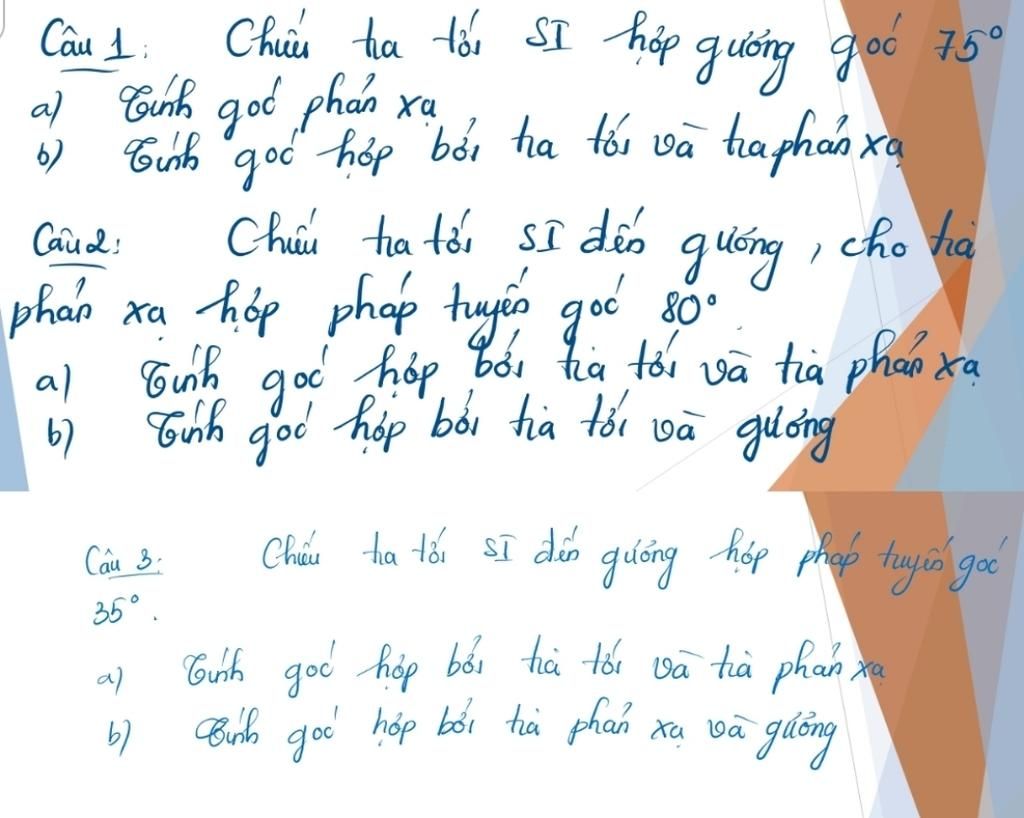 Câu 1: Chiếu tia tới SI hợp gương góc 75°
a) Tính góc phản xạ
b) Tính góc hợp bởi tia tới và tia phản xạ
Câu 2: Chiếu tia tới SI đến gương, cho tia
phản xạ hợp pháp tuyến góc 80°
a) Tính góc hợp bởi tia tới và tia phản xạ
b) Tính góc hợp bởi tia tới và gương
Câu 3: Chiếu tia tới SI đến gương hợp pháp tuyến góc
35°.
a) Tính góc hợp bởi tia tới và tia phản xạ
b) Tính góc hợp bởi tia phản xạ và gương